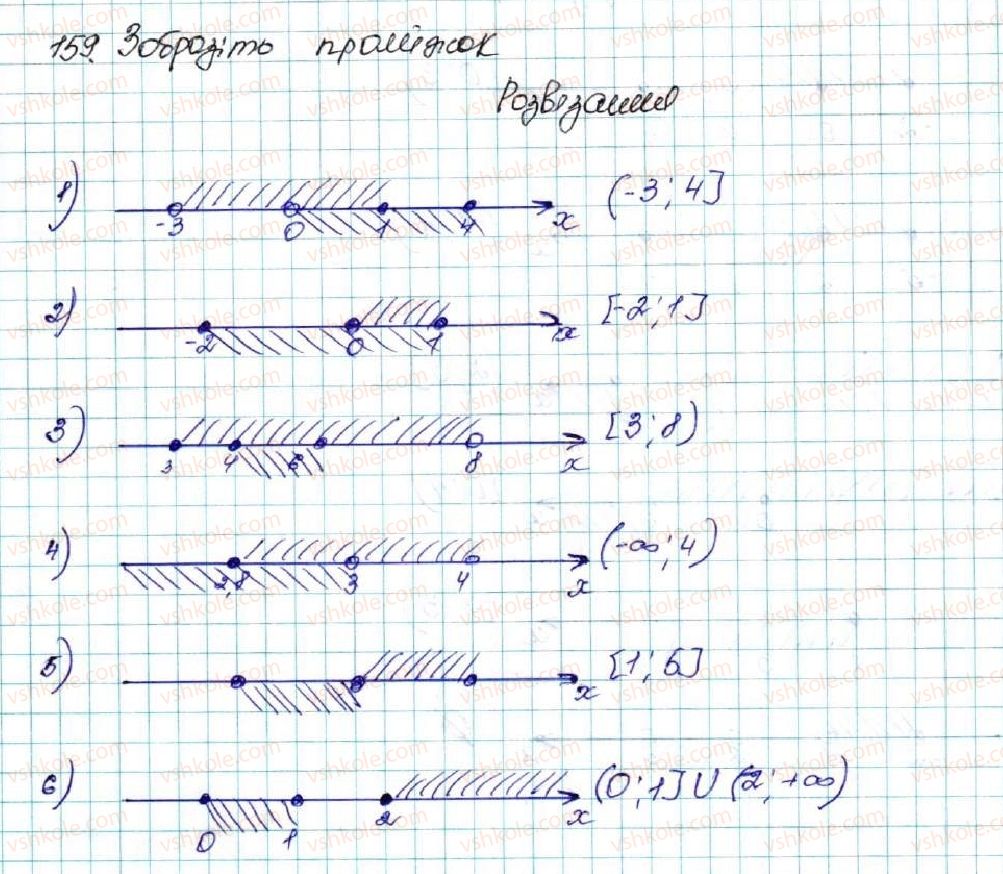 159. Зобразіть проміжок
Розв'язання
1) -3 0 1 4 x (-3; 4]
2) -2 0 1 x [-2; 1]
3) 3 4 8 x [3; 8)
4) 2,8 3 4 x (-∞; 4)
5) x [1; 5]
6) 0 1 2 x (0; 1] U (2; +∞)